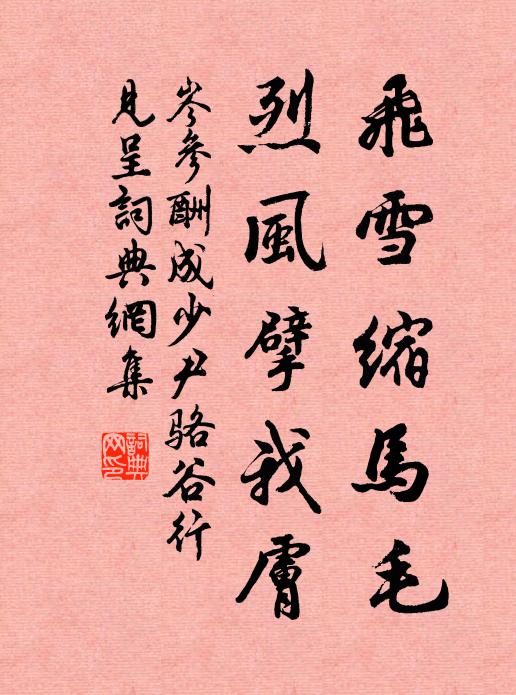 飛雪縮馬毛
烈風擘我膚
岑參酬成少尹駱谷行
見呈詞典網集
詞典網印